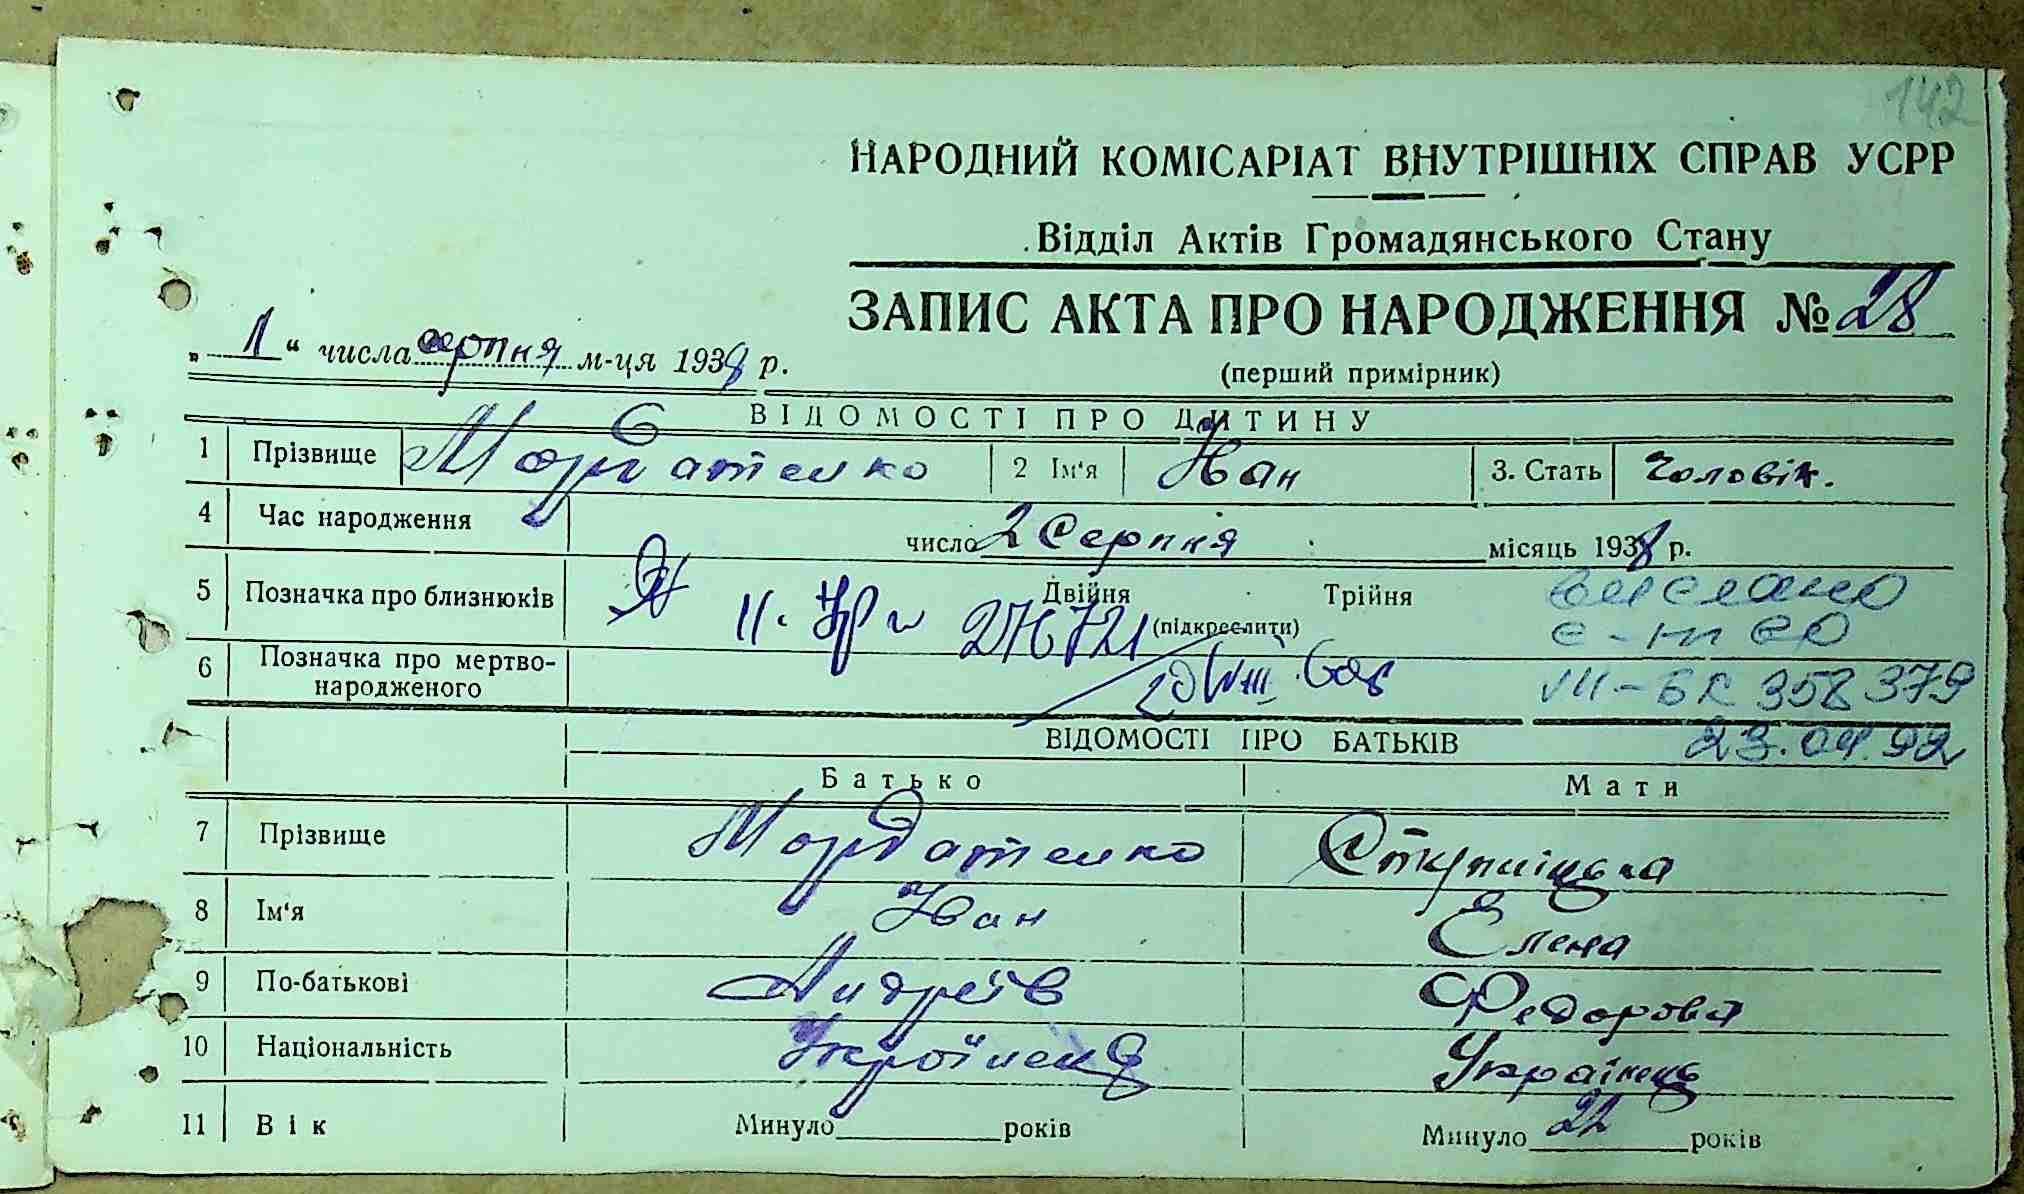 142
НАРОДНИЙ КОМІСАРІАТ ВНУТРІШНІХ СПРАВ УСРР
Відділ Актів Громадянського Стану
ЗАПИС АКТА ПРО НАРОДЖЕННЯ № 28
„ 1 “ числа серпня м-ця 1938 р.
(перший примірник)
ВІДОМОСТІ ПРО ДИТИНУ
1 Прізвище Мордатенко 2 Ім'я Иван 3. Стать Чоловік.
4 Час народження число 2 Серпня місяць 1938 р.
5 Позначка про близнюків Двійня Трійня
(підкреслити)
276721
6 Позначка про мертво-
народженого
20 VIII
выслано
VII-БК 358379
23.04.92
ВІДОМОСТІ ПРО БАТЬКІВ
Батько Мати
7 Прізвище Мордатенко
8 Ім'я Иван Елена
9 По-батькові Андреїв Федорова
10 Національність Українець Українець
11 Вік Минуло ______ років Минуло 22 років